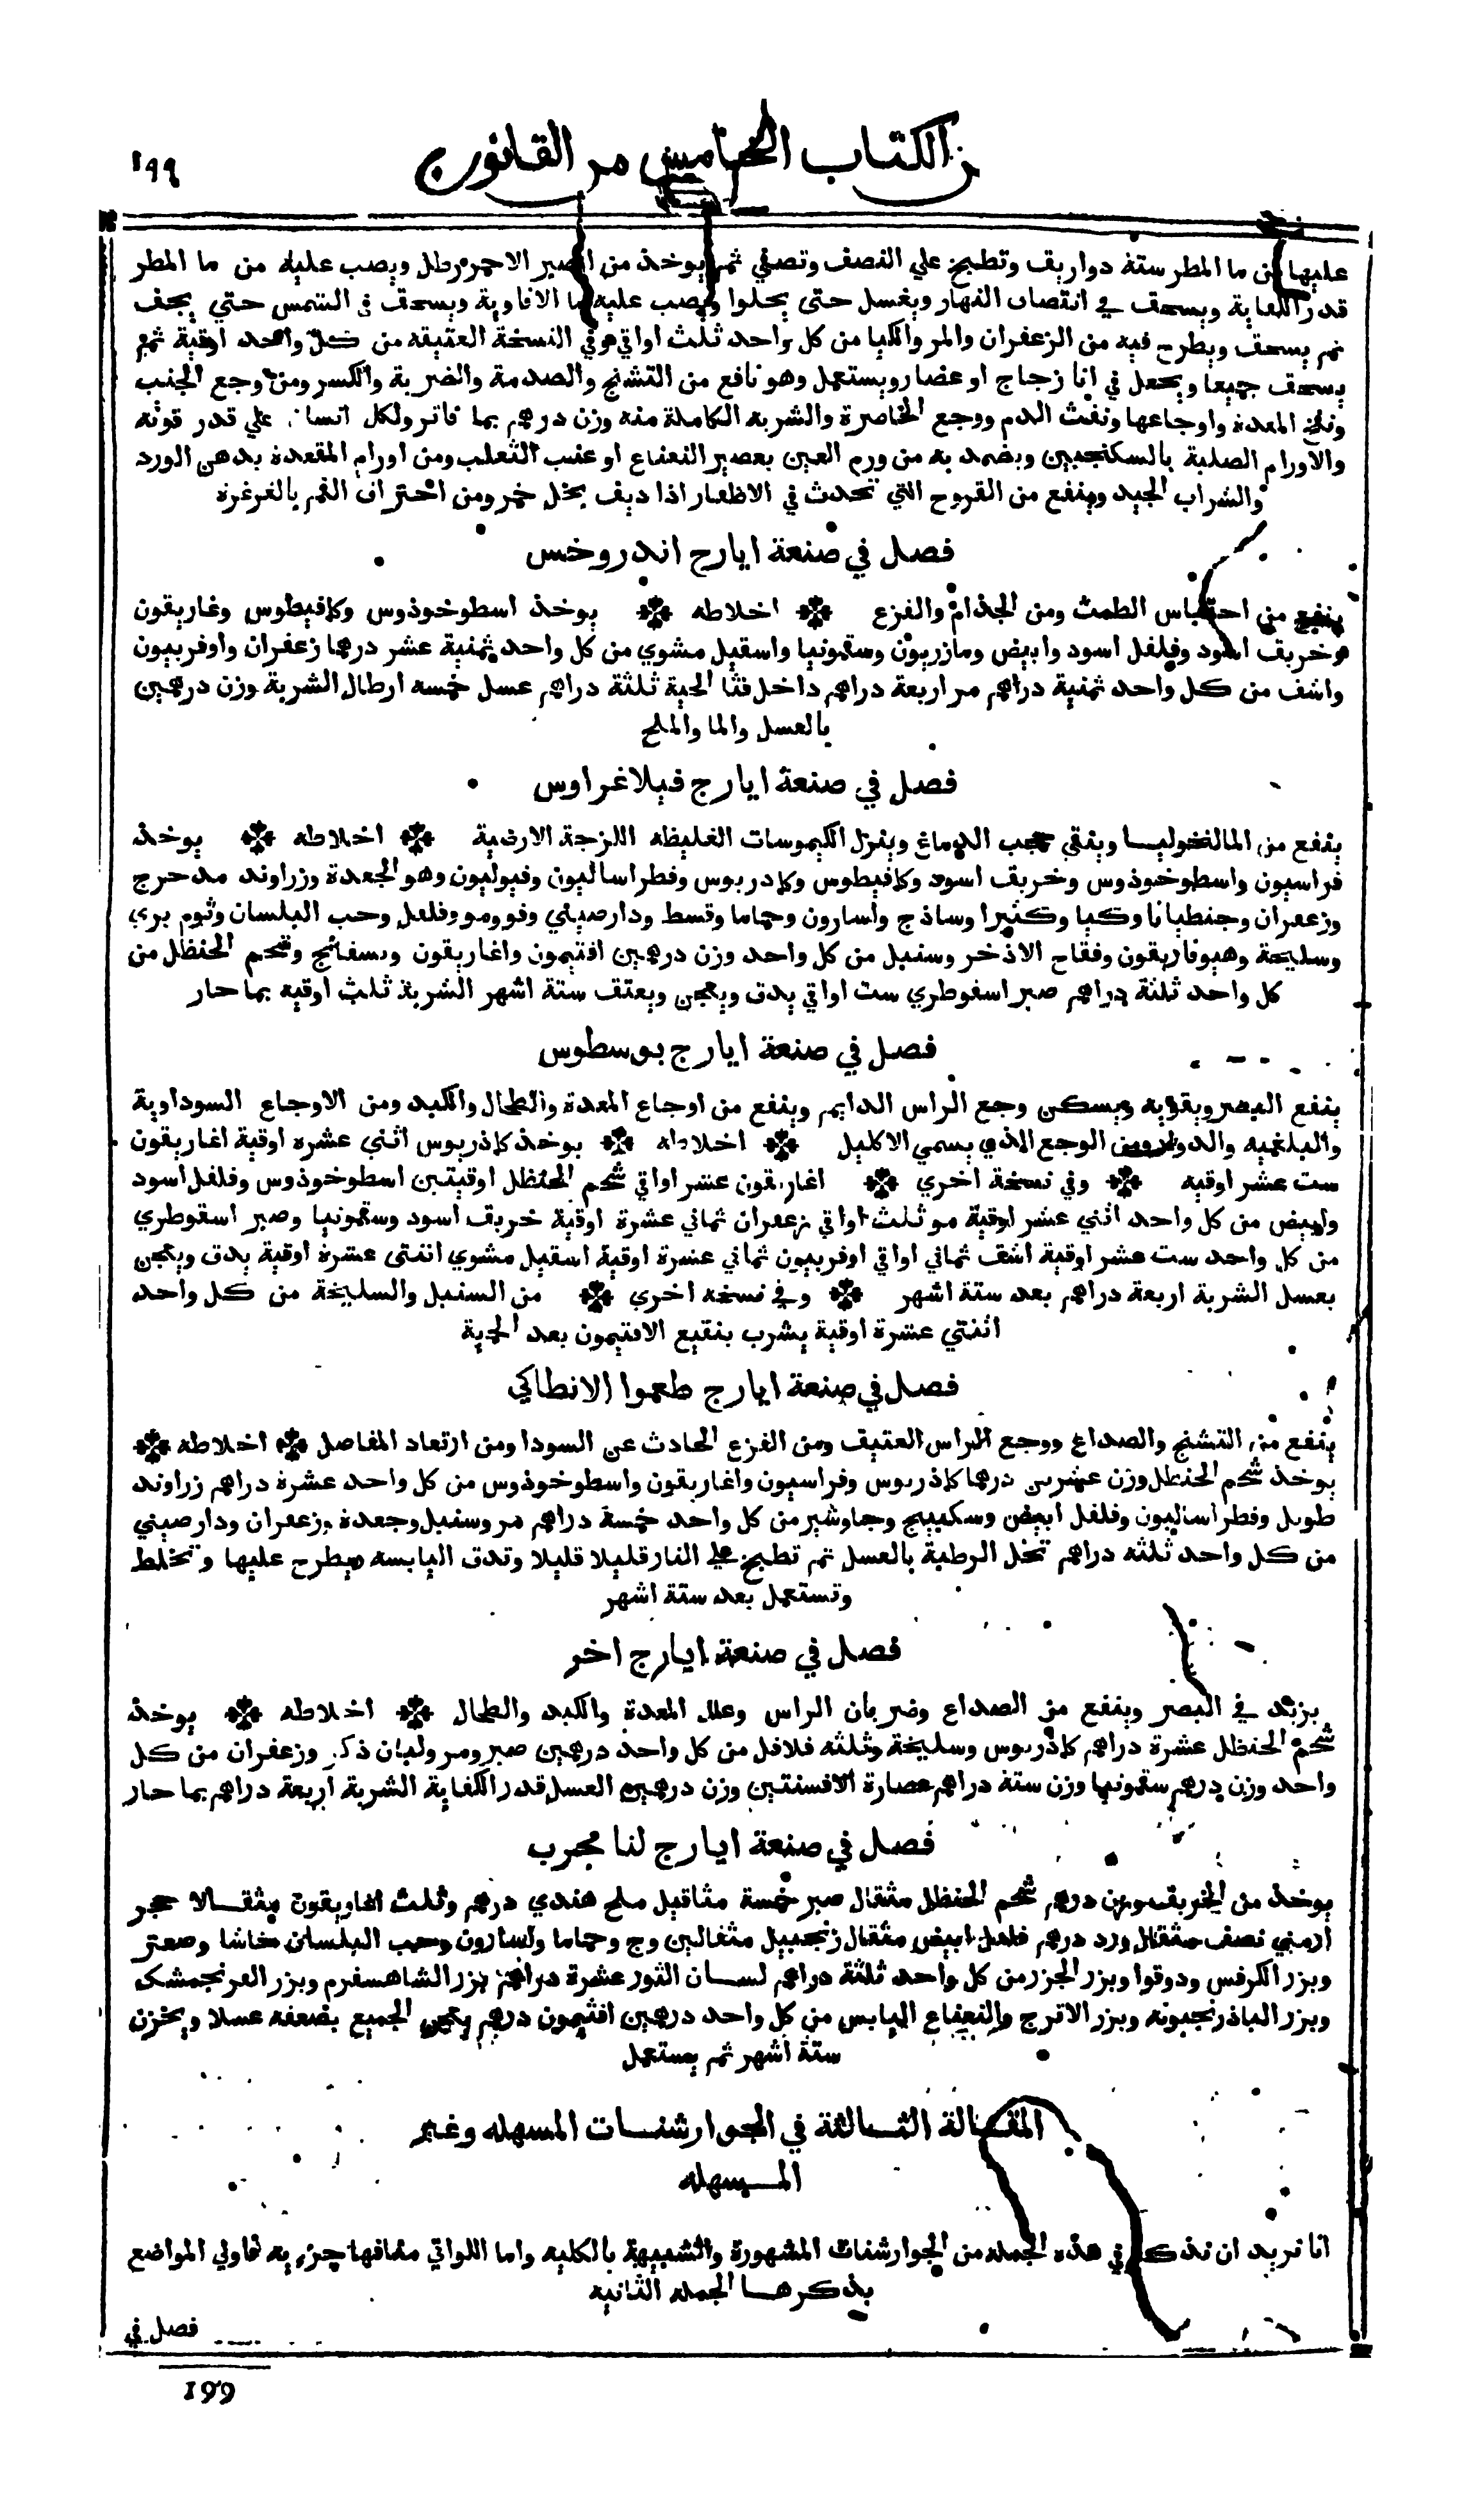 الكتاب الخامس من القانون
١٩٩
عليها من ما المطر ستة دواريق وتطبخ علي النصف وتصفي ثم يوخذ من الصبر الاحمر رطل ويصب عليه من ما المطر
قدر الكفاية ويسحق في انتصاف النهار ويغسل حتي يحلوا ويصب عليه ما الافاوية ويسحق في الشمس حتي يجف
ثم يسحق ويطرح فيه من الزعفران والمر والكيا من كل واحد ثلث اواقي وفي النسخة العتيقه من كل واحد اوقية ثم
يسحق جميعا ويجعل في انا زجاج او غضار ويستعمل وهو نافع من التشنج والصدمة والضربة والكسر ومن وجع الجنب
ونفخ المعدة واوجاعها ونفث الدم ووجع الخاصرة والشربه الكاملة منه وزن درهم بما فاتر ولكل انسان علي قدر قوته
والاورام الصلبة بالسكنجبين ويضمد به من ورم العين بعصير النعناع او عنب الثعلب ومن اورام المقعدة بدهن الورد
والشراب الجيد وينفع من القروح التي تحدث في الاظفار اذا ديف بخل خمر ومن احتراق الفم بالغرغرة
فصل في صنعة ايارج اندروخس
ينفع من احتباس الطمث ومن الجذام والفزع ✤ اخلاطه ✤ يوخذ اسطوخوذوس وكافيطوس وغاريقون
وخربق اسود وفلفل اسود وابيض ومازريون وسقمونيا واسقيل مشوي من كل واحد ثمنية عشر درهما زعفران واوفربيون
واشق من كل واحد ثمنية دراهم مر اربعة دراهم داخل قثا الحية ثلثة دراهم عسل خمسه ارطال الشربة وزن درهمين
بالعسل والما والملح
فصل في صنعة ايارج فيلاغراوس
ينفع من المالنخوليا وينقي حجب الدوماغ وينزل الكيموسات الغليظه اللزجة الارضية ✤ اخلاطه ✤ يوخذ
فراسيون واسطوخوذوس وخربق اسود وكافيطوس وكادريوس وفطراساليون وفيوليون وهو الجعدة وزراوند مدحرج
وزعفران وجنطيانا وكيا وكثيرا وساذج واسارون وحماما وقسط ودارصيني وفو ومو وفلفل وحب البلسان وثوم بري
وسليخة وهيوفاريقون وفقاح الاذخر وسنبل من كل واحد وزن درهمين افتيمون واغاريقون وبسفائج وشحم الحنظل من
كل واحد ثلثة دراهم صبر اسقوطري ست اواقي يدق ويعجن ويعتق ستة اشهر الشربة ثلث اوقيه بما حار
فصل في صنعة ايارج بوسطوس
ينفع البصر ويقويه ويسكن وجع الراس الدايم وينفع من اوجاع المعدة والطحال والكبد ومن الاوجاع السوداوية
والبلغميه والدوار ومن الوجع الذي يسمي الاكليل ✤ اخلاطه ✤ يوخذ كاذريوس اثني عشره اوقية اغاريقون
ست عشر اوقيه ✤ وفي نسخة اخري ✤ اغاريقون عشر اواقي شحم الحنظل اوقيتين اسطوخوذوس وفلفل اسود
وابيض من كل واحد اثني عشر اوقية مو ثلث اواقي زعفران ثماني عشرة اوقية خربق اسود وسقمونيا وصبر اسقوطري
من كل واحد ست عشر اوقية اشق ثماني اواقي اوفربيون ثماني عشرة اوقية اسقيل مشوي اثنتى عشرة اوقية يدق ويعجن
بعسل الشربة اربعة دراهم بعد ستة اشهر ✤ وفي نسخه اخري ✤ من السنبل والسليخة من كل واحد
اثنتي عشرة اوقية يشرب بنقيع الافتيمون بعد الحمية
فصل في صنعة ايارج طعموا الانطاكي
ينفع من التشنج والصداع ووجع الراس العتيق ومن الفزع الحادث عن السودا ومن ارتعاد المفاصل ✤ اخلاطه ✤
يوخذ شحم الحنظل وزن عشرين درهما كاذريوس وفراسيون واغاريقون واسطوخوذوس من كل واحد عشرة دراهم زراوند
طويل وفطراساليون وفلفل ابيض وسكبينج وجاوشير من كل واحد خمسة دراهم مر وسنبل وجعدة وزعفران ودارصيني
من كل واحد ثلثه دراهم تحل الرطبة بالعسل ثم تطبخ علي النار قليلا قليلا وتدق اليابسه ويطرح عليها وتخلط
وتستعمل بعد ستة اشهر
فصل في صنعة ايارج اخر
يزيد في البصر وينفع من الصداع وضربان الراس وعلل المعدة والكبد والطحال ✤ اخلاطه ✤ يوخذ
شحم الحنظل عشرة دراهم كاذريوس وسليخة وثلثه فلافل من كل واحد درهمين صبر ومر ولبان ذكر وزعفران من كل
واحد وزن درهم سقمونيا وزن ستة دراهم عصارة الافسنتين وزن درهمين العسل قدر الكفاية الشربة اربعة دراهم بما حار
فصل في صنعة ايارج لنا مجرب
يوخذ من الخربق وزن درهم شحم الحنظل مثقال صبر خمسة مثاقيل ملح هندي درهم وثلث اغاريقون مثقالا حجر
ارمني نصف مثقال ورد درهم فلفل ابيض مثقال زنجبيل مثقالين وج وحماما واسارون وحب البلسان حاشا وصعتر
وبزر الكرفس ودوقوا وبزر الجزر من كل واحد ثلثة دراهم لسان الثور عشرة دراهم بزر الشاهسفرم وبزر الفرنجمشک
وبزر الباذرنجبونه وبزر الاترج والنعناع اليابس من كل واحد درهمين افتيمون درهم يعجن الجميع بضعفه عسلا ويخزن
ستة اشهر ثم يستعمل
المقالة الثالثة في الجوارشنات المسهله وغير
المسهله
انا نريد ان نذكر في هذه الجمله من الجوارشنات المشهورة والشبيهة بالكليه واما اللواتي منافعها جزءيه فاولي المواضع
بذكرها الجمله الثانيه
فصل في
199